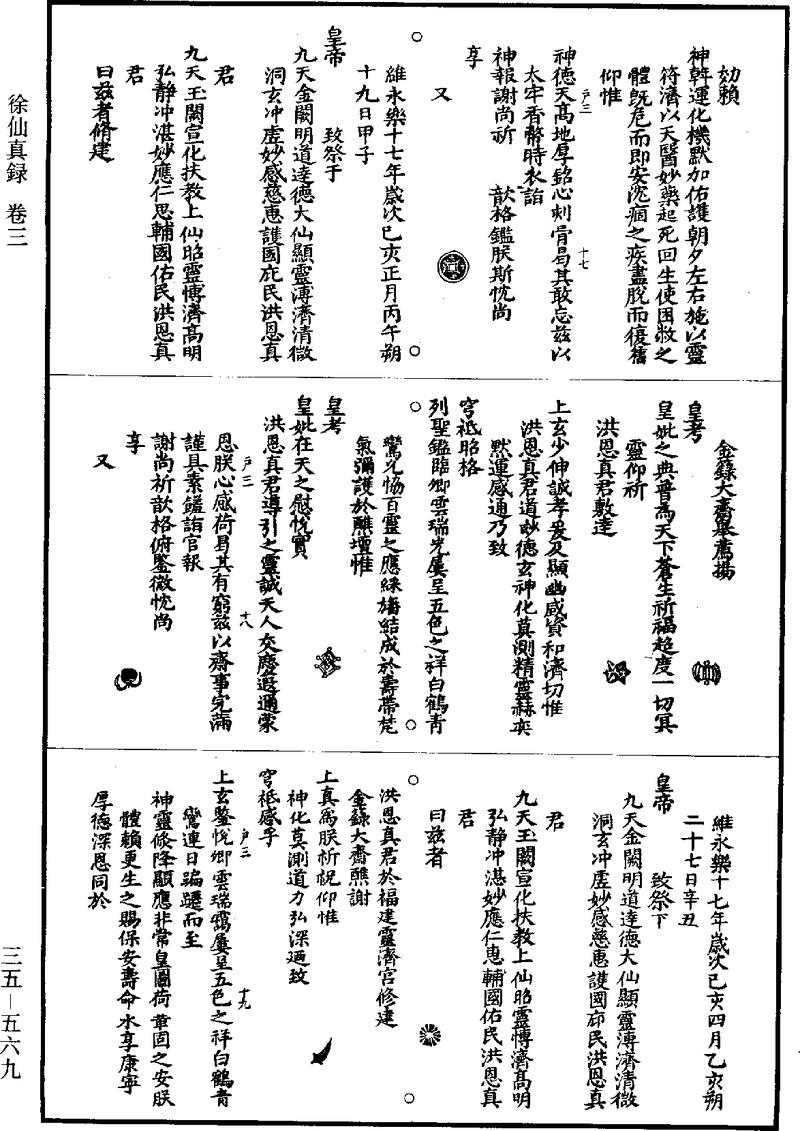 徐仙真録　卷三
三五—五六九
妙賴
神斡運化機默加佑護朝夕左右施以靈
符濟以天醫妙藥起死回生使困敝之
體既危而即安沈痼之疾盡脫而復舊
仰惟
户三
十七
神德天高地厚銘心刻骨曷其敢忘兹以
太牢香幣時水詣
神報謝尚祈　歆格鑑朕斯忱尚
享
又
維永樂十七年歲次己亥正月丙午朔
十九日甲子
皇帝　致祭于
九天金闕明道達德大仙顯靈溥濟清微
洞玄冲虛妙感慈惠護國庇民洪恩真
君
九天玉闕宣化扶教上仙昭靈博濟高明
弘静冲湛妙應仁思輔國佑民洪恩真
君
曰兹者脩建
金籙大齋舉薦揚
皇考
皇妣之典普為天下蒼生祈福超度一切冥
靈仰祈
洪恩真君敷達
上玄少伸誠孝爰及顯幽咸資和濟切惟
洪恩真君道妙德玄神化莫測精靈赫奕
默運感通乃致
穹祗昭格
列聖鑑臨卿雲瑞光屢呈五色之祥白鶴青
鸞允恊百靈之應綵旛結成於壽帶梵
氣彌護於醮壇惟
皇考
皇妣在天之慰悅實
洪恩真君導引之靈誠天人交慶遐邇蒙
户三
十八
恩朕心感荷曷其有窮兹以齋事完滿
謹具素饈詣宫報
謝尚祈歆格俯鑒微忱尚
享
又
維永樂十七年歲次己亥四月乙亥朔
二十七日辛丑
皇帝　致祭下
九天金闕明道達德大仙顯靈溥濟清微
洞玄冲虛妙感慈惠護國庇民洪恩真
君
九天玉闕宣化扶教上仙昭靈博濟高明
弘静冲湛妙應仁惠輔國佑民洪恩真
君
曰兹者
洪恩真君於福建靈濟宫修建
金籙大齋醮謝
上真為朕祈祝仰惟
神化莫測道力弘深迺致
穹祗感孚
户三
十九
上玄鑒悅卿雲瑞靄屢呈五色之祥白鶴青
鸞連日蹁躚而至
神靈倏降顯應非常皇圖荷鞏固之安朕
體賴更生之賜保安壽命永享康寧
厚德深恩同於